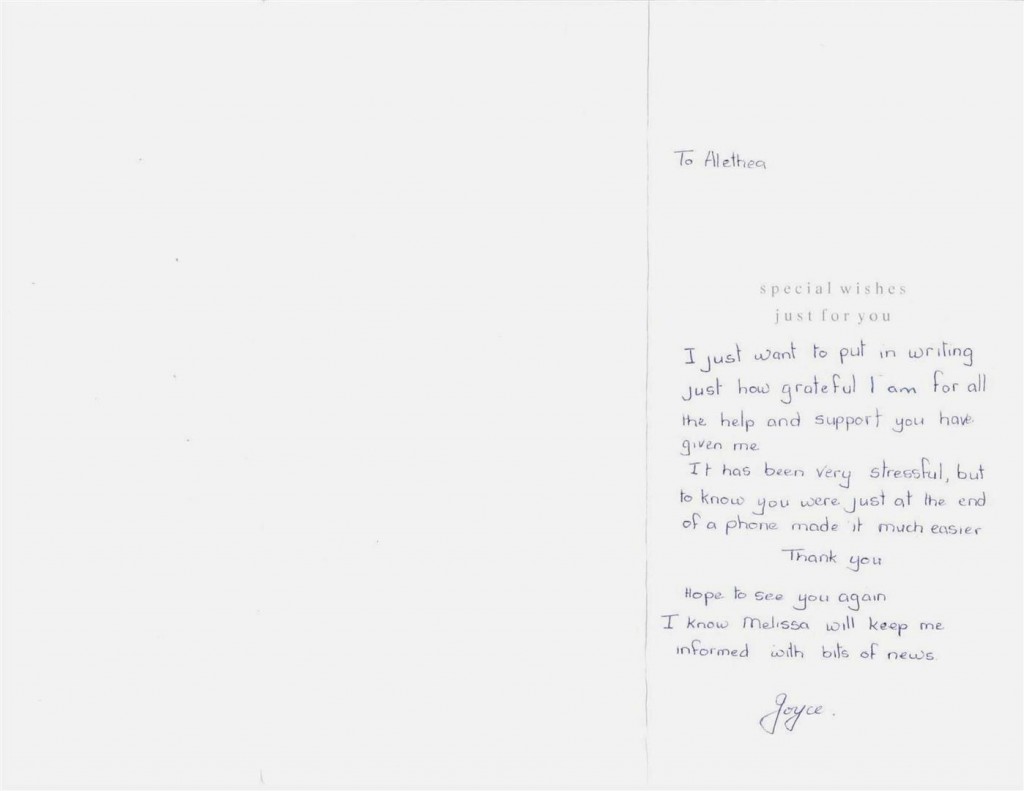 To Alethea
special wishes
just for you
I just want to put in writing
just how grateful I am for all
the help and support you have
given me
It has been very stressful, but
to know you were just at the end
of a phone made it much easier
Thank you
Hope to see you again
I know Melissa will keep me
informed with bits of news
Joyce.